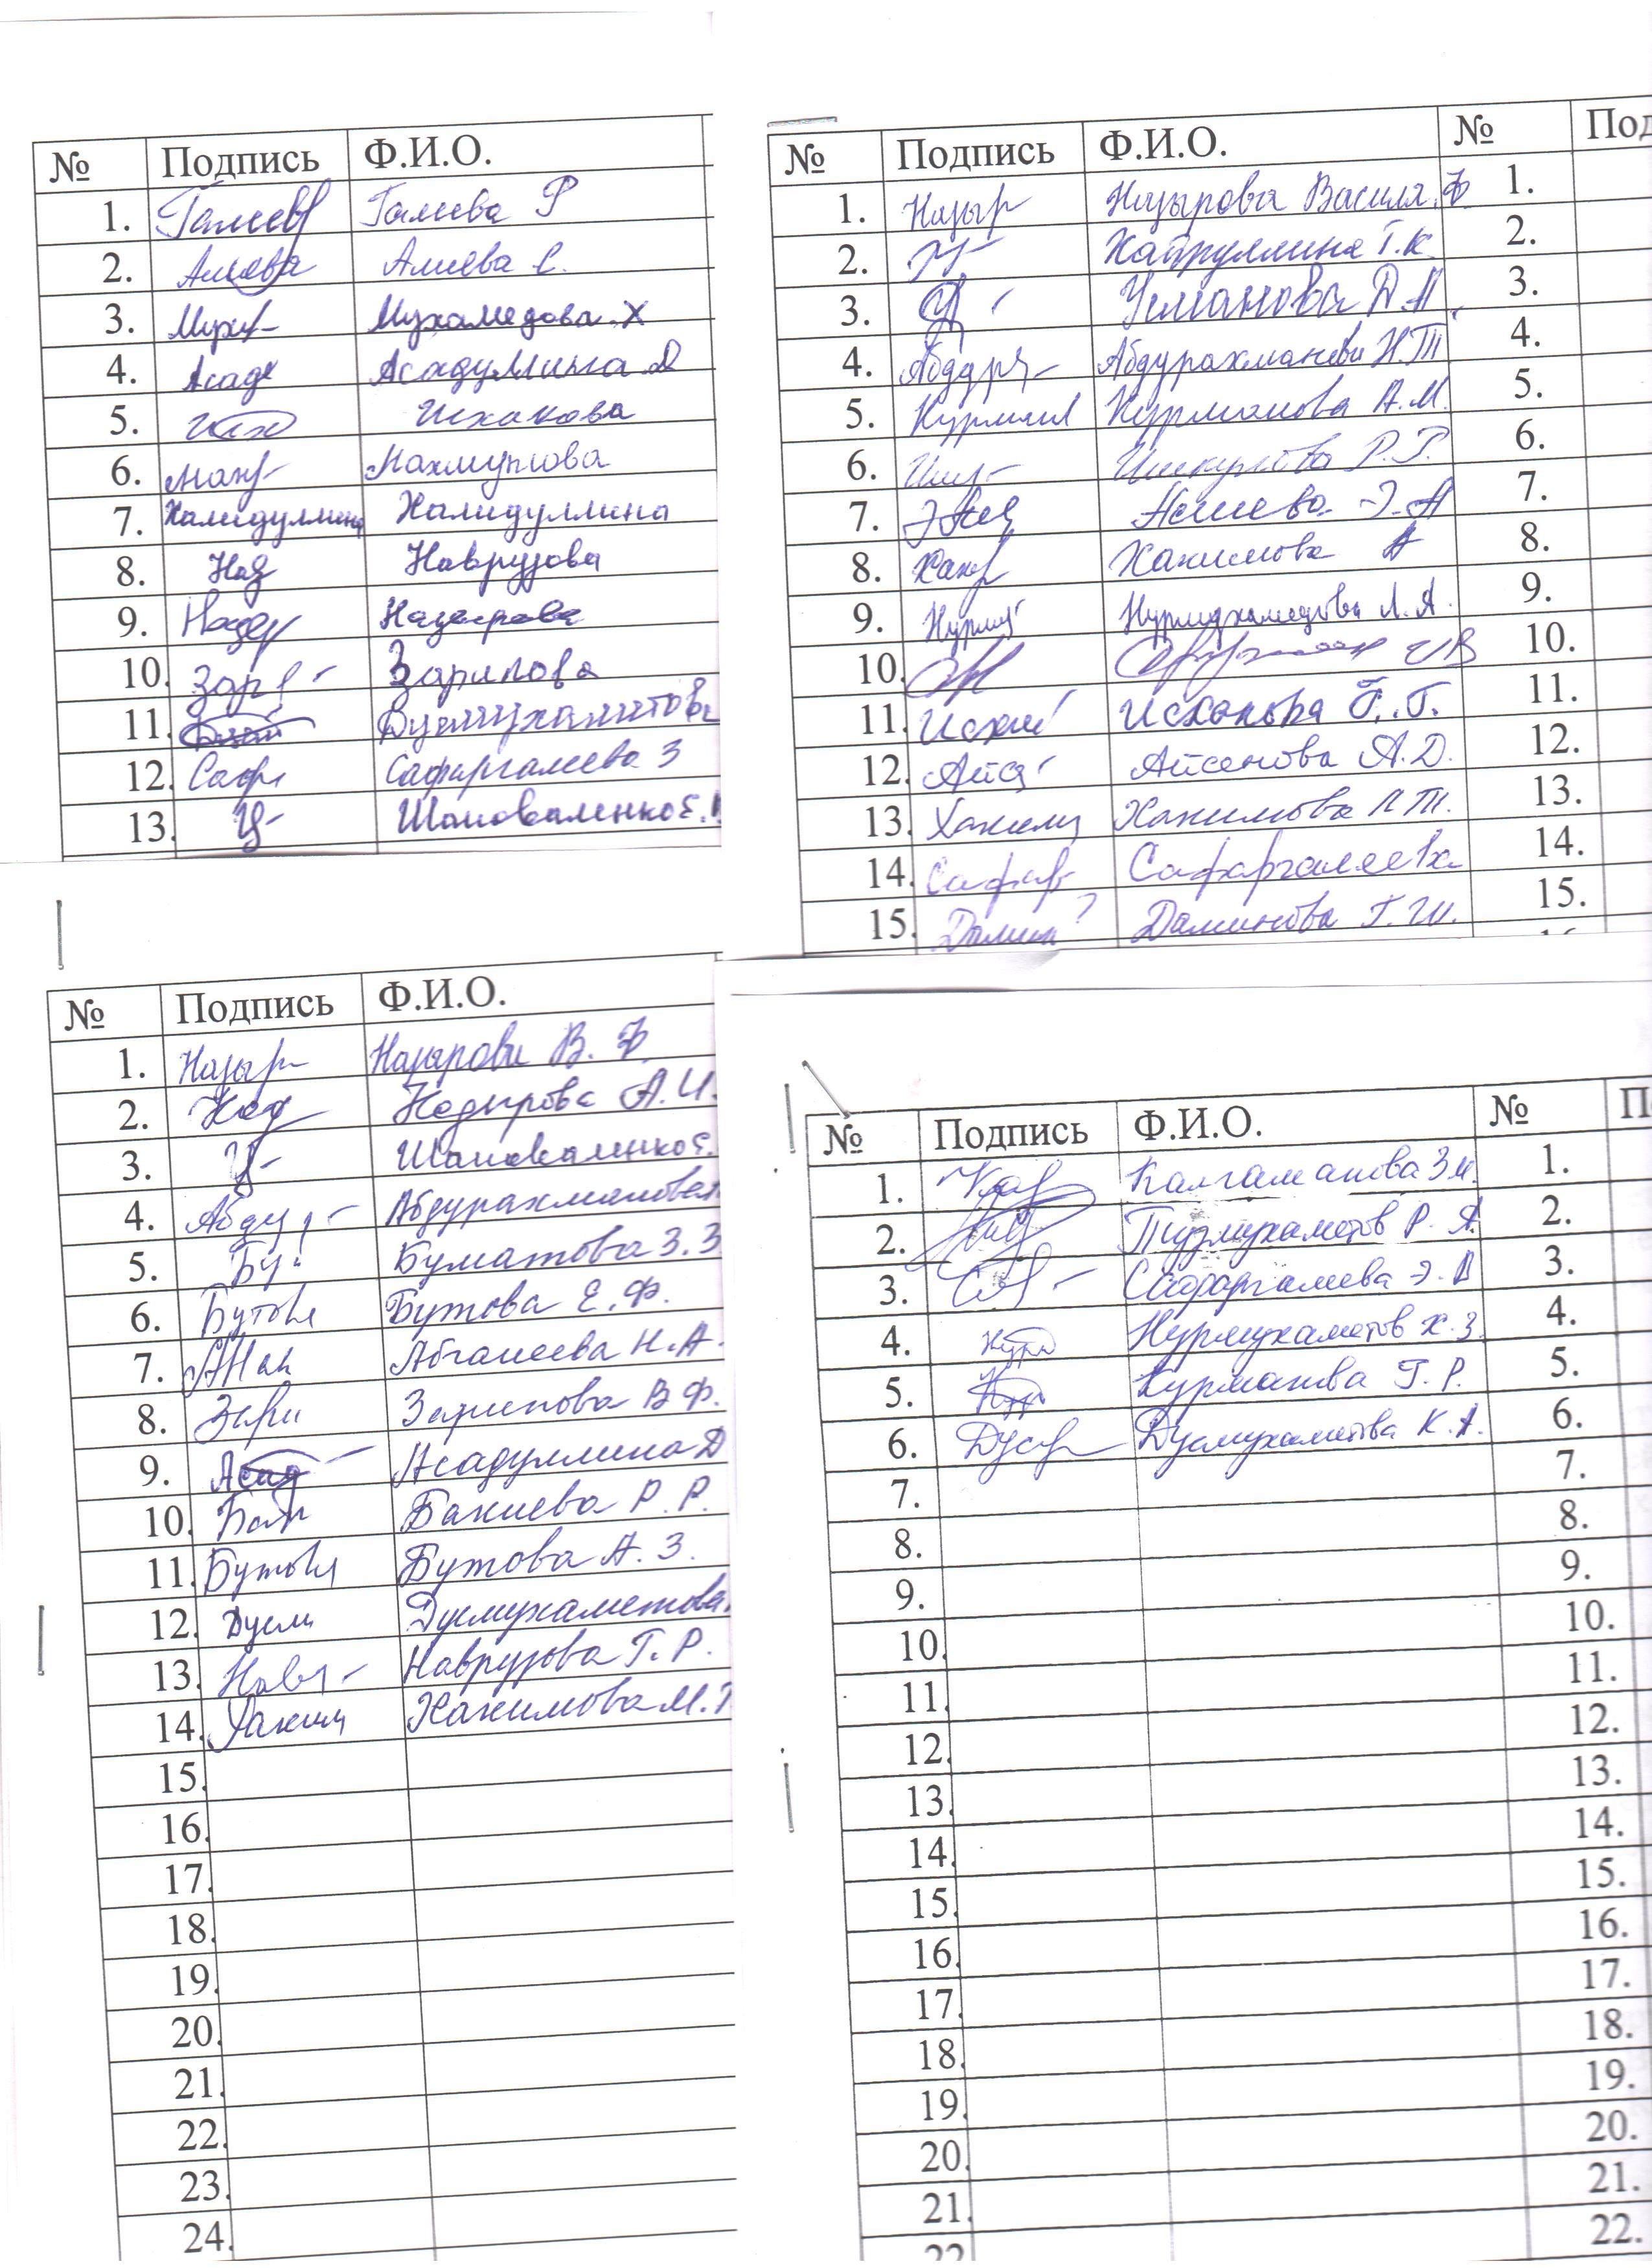 № Подпись Ф.И.О.
1. Галиева Р
2. Алиева Алиева С.
3. Мухамедова Х
4. Асад Асадуллина Д
5. Исхакова
6. Махмутова
7. Халидуллина Халидуллина
8. Наврузова
9. Надырова
10. Зар Зарипова
11. Дусмухаметова
12. Саф Сафаргалеева З
13. Шаповаленко Е.
№ Подпись Ф.И.О. № Под
1. Назыр Назырова Васила Ф 1.
2. Хайруллина Г.К. 2.
3. Усманова Д 3.
4. Абдурахманова Н.Т 4.
5. Курман Курманова А.М. 5.
6. Р.Г. 6.
7. Э.А 7.
8. Хаким Хакимова А 8.
9. Нурмухамедова Л.А. 9.
10. 10.
11. Исхакова Г.Г. 11.
12. Айса Айсанова А.Д. 12.
13. Хаким Хакимова 13.
14. Сафар Сафаргалеева 14.
15. Дамин Даминова Г.Ш. 15.
№ Подпись Ф.И.О.
1. Назыр Назырова В. Ф.
2. Над Надырова А.И.
3. Шаповаленко Е.
4. Абдур Абдурахманова
5. Бу Буматова З.З
6. Бутова Бутова Е.Ф.
7. Абганеева Н.А.
8. Зари Зарипова В Ф.
9. Асад Асадуллина Д
10. Бакиева Р.Р.
11. Бутова Бутова А.З.
12. Дусм Дусмухаметова
13. Навр Наврузова Г.Р.
14. Хаким Хакимова М.
15.
16.
17.
18.
19.
20.
21.
22.
23.
24.
№ Подпись Ф.И.О. №
1. Калгаманова З м. 1.
2. Р. А. 2.
3. Сафаргалеева Э. 3.
4. Нурмухаметов Х.З. 4.
5. Курманова Г.Р. 5.
6. Дусм Дусмухаметова К.А. 6.
7. 7.
8. 8.
9. 9.
10. 10.
11. 11.
12. 12.
13. 13.
14. 14.
15. 15.
16. 16.
17. 17.
18. 18.
19. 19.
20. 20.
21. 21.
22. 22.